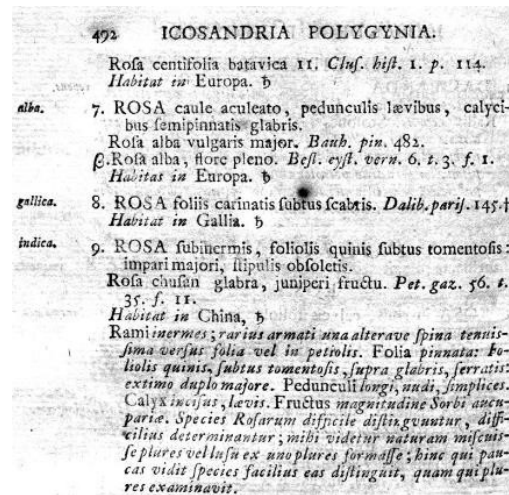 492 ICOSANDRIA POLYGYNIA.
Roſa centifolia batavica 11. Cluſ. hiſt. 1. p. 114.
Habitat in Europa. ♄
alba. 7. ROSA caule aculeato, pedunculis lævibus, calyci-
bus ſemipinnatis glabris.
Roſa alba vulgaris major. Bauh. pin. 482.
β. Roſa alba, flore pleno. Beſl. eyſt. vern. 6. t. 3. f. 1.
Habitas in Europa. ♄
gallica. 8. ROSA foliis carinatis ſubtus ſcabris. Dalib. pariſ. 145.†
Habitat in Gallia. ♄
indica. 9. ROSA ſubinermis, foliolis quinis ſubtus tomentoſis:
impari majori, ſtipulis obſoletis.
Roſa chuſan glabra, juniperi fructu. Pet. gaz. 56. t.
35. f. 11.
Habitat in China, ♄
Rami inermes; rarius armati una alterave ſpina tenuiſ-
ſima verſus folia vel in petiolis. Folia pinnata: fo-
liolis quinis, ſubtus tomentoſis, ſupra glabris, ſerratis:
extimo duplo majore. Pedunculi longi, nudi, ſimplices.
Calyx inciſus, lævis. Fructus magnitudine Sorbi aucu-
pariæ. Species Roſarum difficile diſtingvuntur, diffi-
cilius determinantur; mihi videtur naturam miſcuiſ-
ſe plures vel luſu ex uno plures formaſſe; hinc qui pau-
cas vidit ſpecies facilius eas diſtinguit, quam qui plu-
res examinavit.